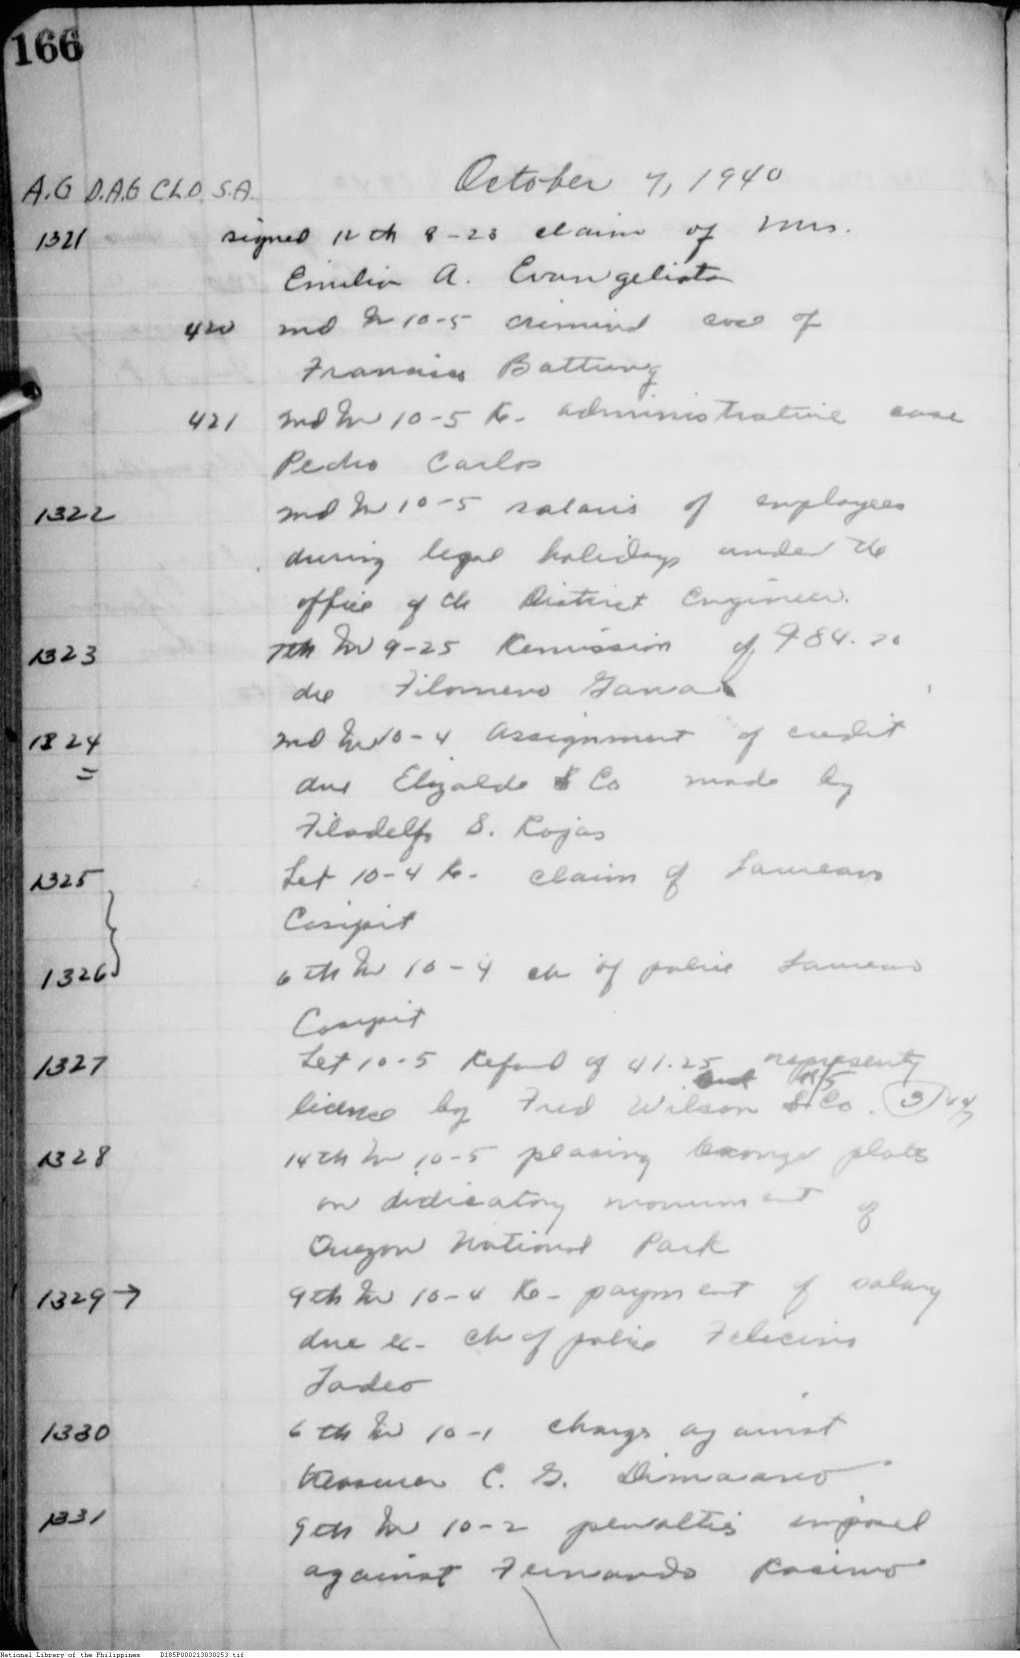 166
October 7, 1940
A.G D.A.G CL.O. S.A.
1321 signed 12th 8-23 claim of Mrs.
Emilia A. Evangelista
420 2nd In 10-5 criminal case of
Francisco Battung
421 2nd In 10-5 Re- administrative case
Pedro Carlos
1322 2nd In 10-5 salaris of employees
during legal holidays under the
office of the District Engineer.
1323 7th In 9-25 Remission of ₱84.20
due Filomeno Gana
1324 2nd In 10-4 Assignment of credit
due Elizalde & Co made by
Filadelfo S. Rojas
1325 Let 10-4 Re- claim of Laureano
Cosipit
1326 6th In 10-4 ch of police Laureano
Cosipit
1327 Let 10-5 Refund of 41.25 representg
license by Fred Wilson & Co.
1328 14th In 10-5 placing bronze plate
on dedicatory monument of
Quezon National Park
1329 → 9th In 10-4 Re- payment of salary
due ex- ch of police Feliciano
Tadeo
1330 6th In 10-1 charge against
treasurer C. G. Dimaano
1331 9th In 10-2 penalties imposed
against Fernando Rosimo
National Library of the Philippines D185P000213030253.tif